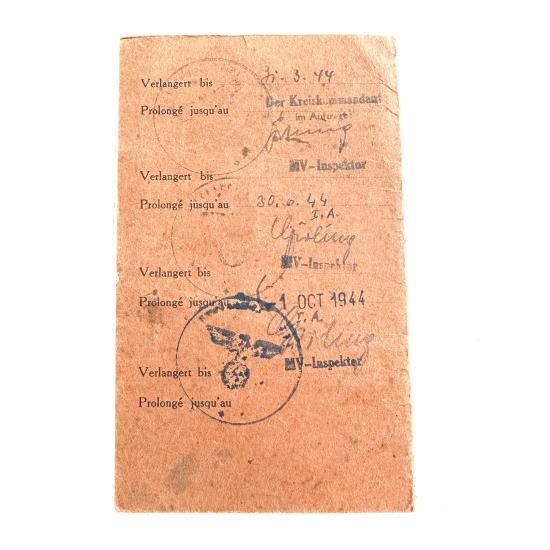 Verlangert bis 31. 3. 44
Prolongé jusqu'au Der Kreiskommandant
im Auftrage
MV-Inspektor
Verlangert bis
Prolongé jusqu'au 30. 6. 44
I.A.
MV-Inspektor
Verlangert bis
Prolongé jusqu'au -1 OCT 1944
I.A.
MV-Inspektor
Verlangert bis
Prolongé jusqu'au